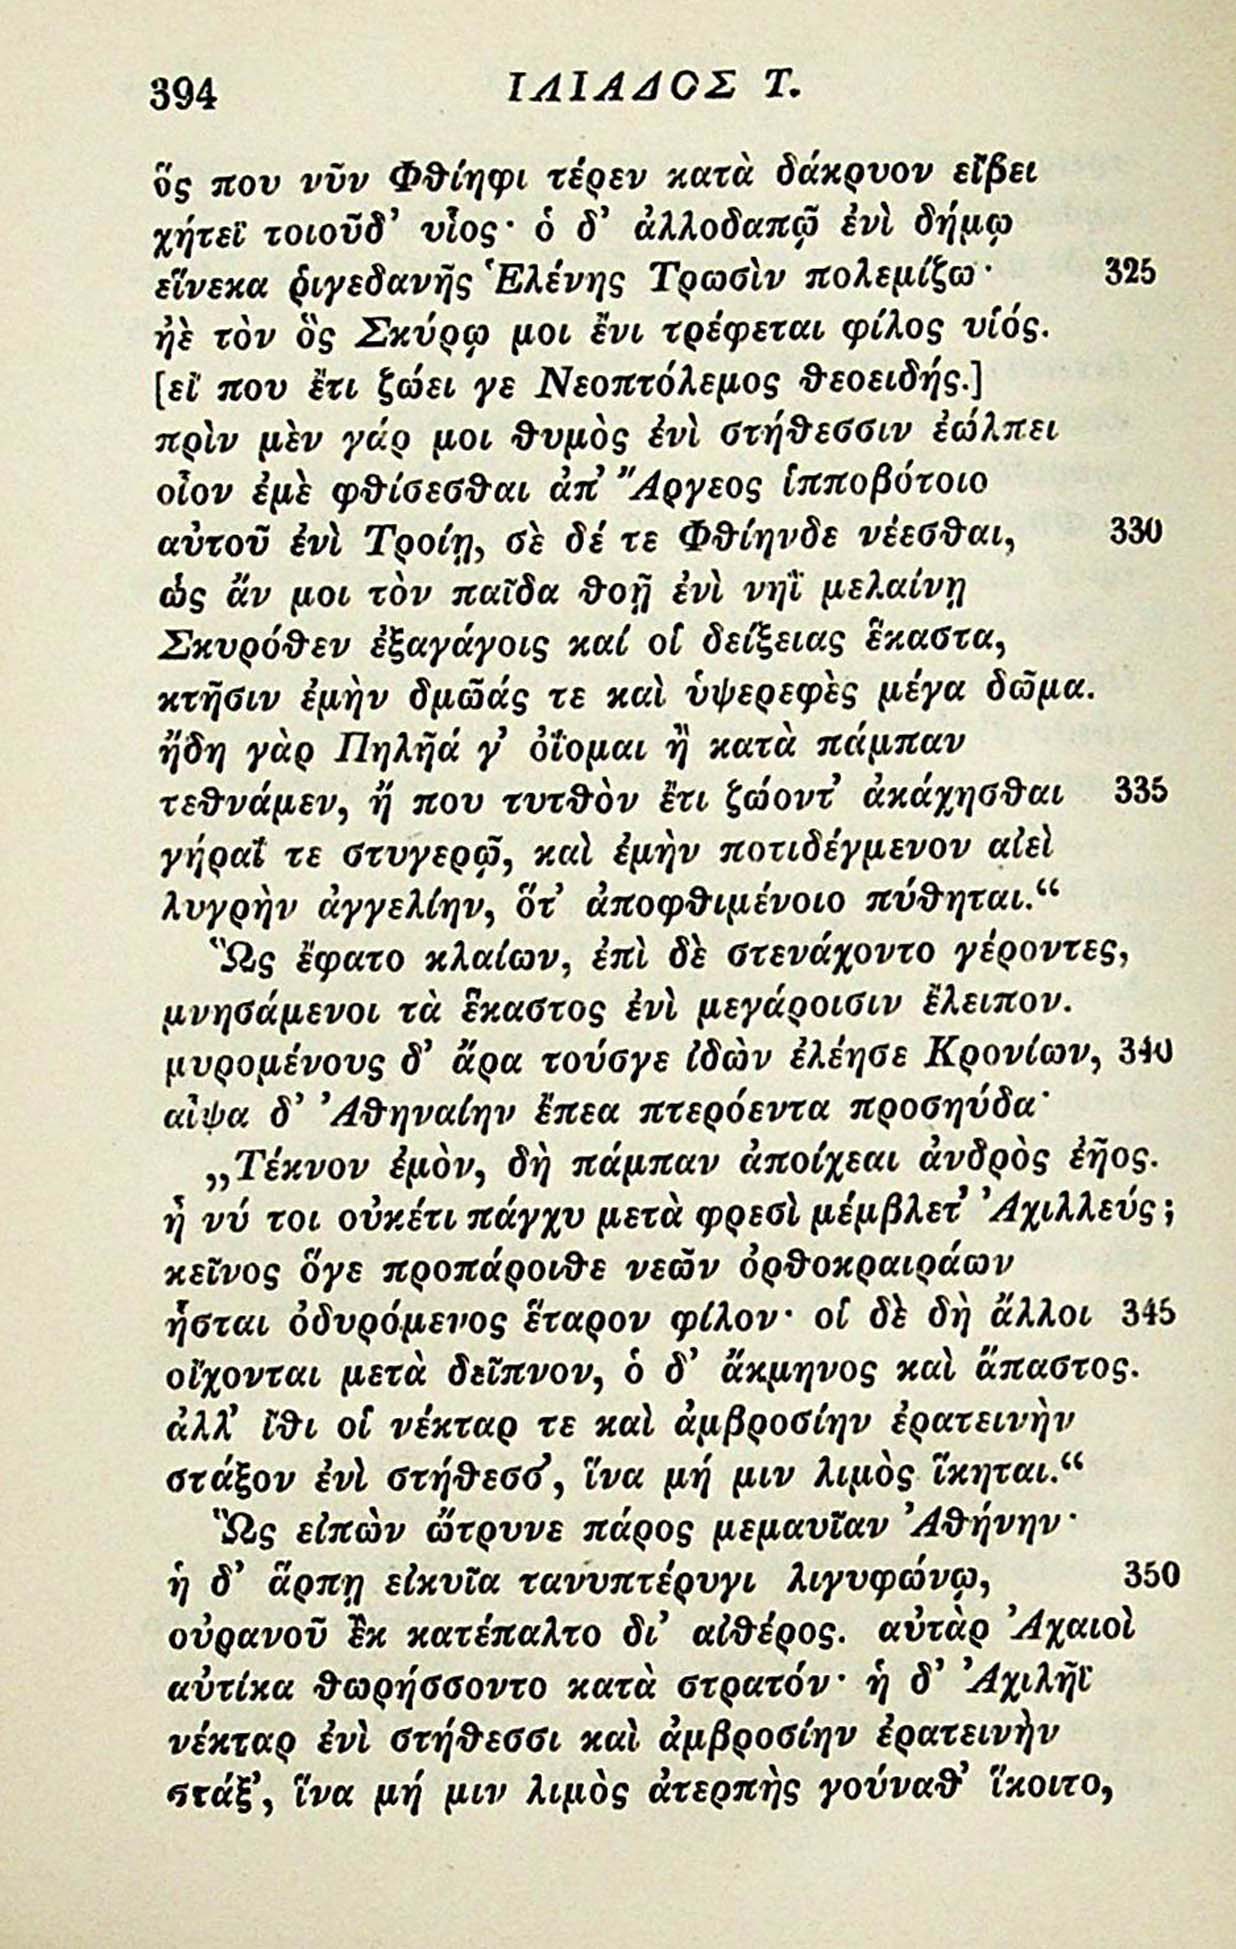 394 ΙΛΙΑΔΟΣ Τ.
ὅς που νῦν Φθίηφι τέρεν κατὰ δάκρυον εἴβει
χήτεϊ τοιοῦδ’ υἷος· ὁ δ’ ἀλλοδαπῷ ἐνὶ δήμῳ
εἵνεκα ῥιγεδανῆς Ἑλένης Τρωσὶν πολεμίζω· 325
ἠὲ τὸν ὃς Σκύρῳ μοι ἔνι τρέφεται φίλος υἱός.
[εἴ που ἔτι ζώει γε Νεοπτόλεμος θεοειδής.]
πρὶν μὲν γάρ μοι θυμὸς ἐνὶ στήθεσσιν ἐώλπει
οἶον ἐμὲ φθίσεσθαι ἀπ’ Ἄργεος ἱπποβότοιο
αὐτοῦ ἐνὶ Τροίῃ, σὲ δέ τε Φθίηνδε νέεσθαι, 330
ὡς ἄν μοι τὸν παῖδα θοῇ ἐνὶ νηῒ μελαίνῃ
Σκυρόθεν ἐξαγάγοις καί οἱ δείξειας ἕκαστα,
κτῆσιν ἐμὴν δμῶάς τε καὶ ὑψερεφὲς μέγα δῶμα.
ἤδη γὰρ Πηλῆά γ’ ὀΐομαι ἢ κατὰ πάμπαν
τεθνάμεν, ἤ που τυτθὸν ἔτι ζώοντ’ ἀκάχησθαι 335
γήραΐ τε στυγερῷ, καὶ ἐμὴν ποτιδέγμενον αἰεὶ
λυγρὴν ἀγγελίην, ὅτ’ ἀποφθιμένοιο πύθηται.“
Ὣς ἔφατο κλαίων, ἐπὶ δὲ στενάχοντο γέροντες,
μνησάμενοι τὰ ἕκαστος ἐνὶ μεγάροισιν ἔλειπον.
μυρομένους δ’ ἄρα τούσγε ἰδὼν ἐλέησε Κρονίων, 340
αἶψα δ’ Ἀθηναίην ἔπεα πτερόεντα προσηύδα·
„Τέκνον ἐμὸν, δὴ πάμπαν ἀποίχεαι ἀνδρὸς ἑῆος.
ἦ νύ τοι οὐκέτι πάγχυ μετὰ φρεσὶ μέμβλετ’ Ἀχιλλεύς;
κεῖνος ὅγε προπάροιθε νεῶν ὀρθοκραιράων
ἧσται ὀδυρόμενος ἕταρον φίλον· οἱ δὲ δὴ ἄλλοι 345
οἴχονται μετὰ δεῖπνον, ὁ δ’ ἄκμηνος καὶ ἄπαστος.
ἀλλ’ ἴθι οἱ νέκταρ τε καὶ ἀμβροσίην ἐρατεινὴν
στάξον ἐνὶ στήθεσσ’, ἵνα μή μιν λιμὸς ἵκηται.“
Ὣς εἰπὼν ὤτρυνε πάρος μεμαυῖαν Ἀθήνην·
ἡ δ’ ἅρπῃ εἰκυῖα τανυπτέρυγι λιγυφώνῳ, 350
οὐρανοῦ ἒκ κατέπαλτο δι’ αἰθέρος. αὐτὰρ Ἀχαιοὶ
αὐτίκα θωρήσσοντο κατὰ στρατόν· ἡ δ’ Ἀχιλῆϊ
νέκταρ ἐνὶ στήθεσσι καὶ ἀμβροσίην ἐρατεινὴν
στάξ’, ἵνα μή μιν λιμὸς ἀτερπὴς γούναθ’ ἵκοιτο,